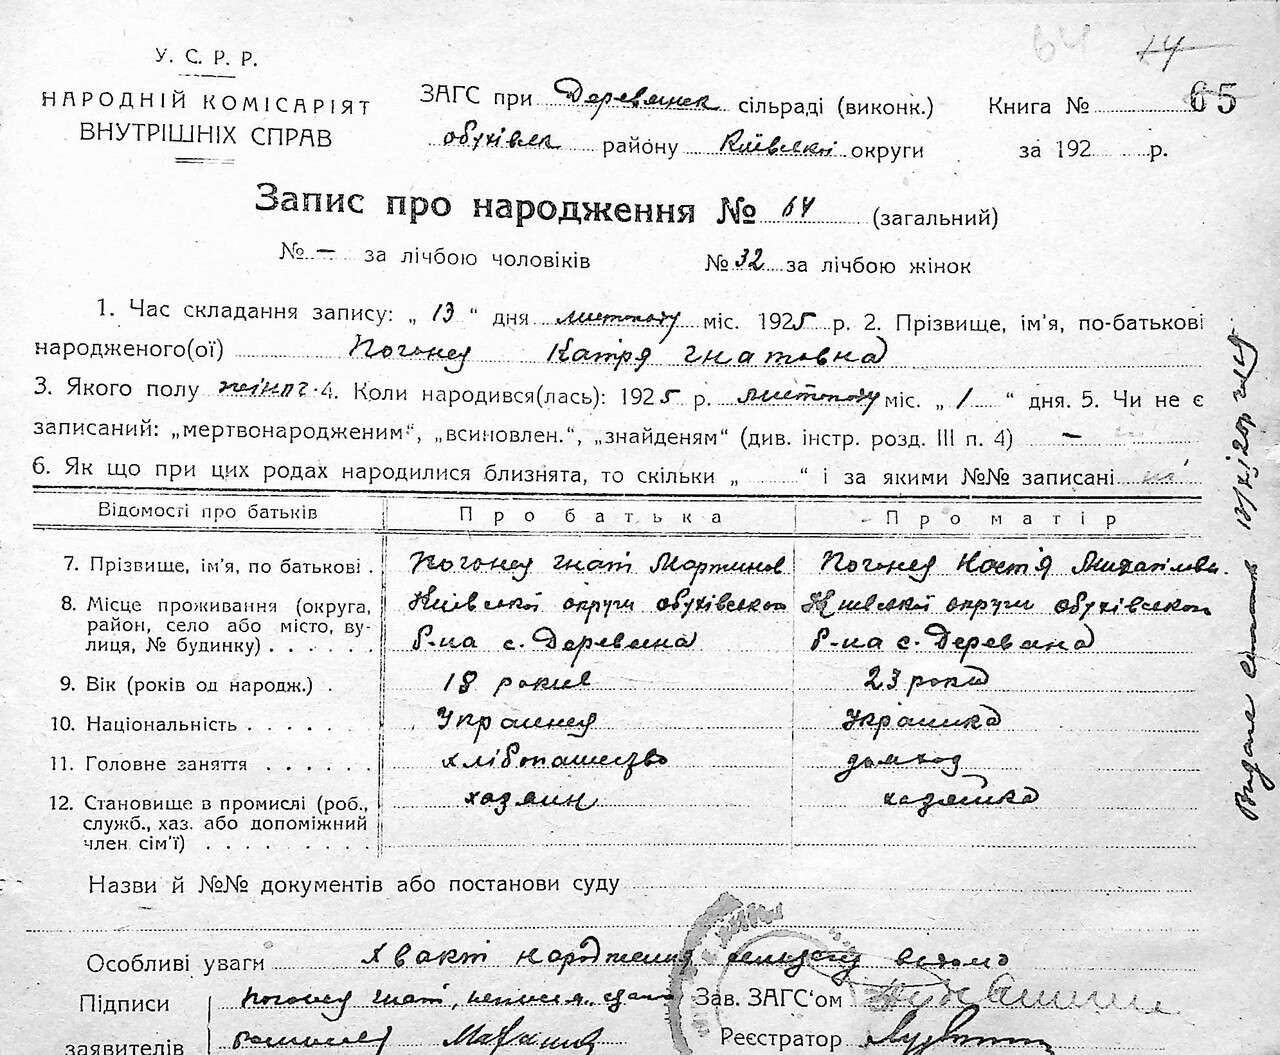 64 14
У. С. Р. Р.
НАРОДНІЙ КОМІСАРІЯТ
ВНУТРІШНІХ СПРАВ
ЗАГС при Деревянск сільраді (виконк.) Книга № 65
обухівск району Київскої округи за 192 р.
Запис про народження № 64 (загальний)
№ — за лічбою чоловіків № 32 за лічбою жінок
1. Час складання запису: „ 13 “ дня листопаду міс. 1925 р. 2. Прізвище, ім'я, по-батькові
народженого(ої) Погонец Катря гнатовна
3. Якого полу жіноч. 4. Коли народився(лась): 1925 р. листопаду міс. „ 1 “ дня. 5. Чи не є
записаний: „мертвонародженим“, „всиновлен.“, „знайденям“ (див. інстр. розд. III п. 4) —
6. Як що при цих родах народилися близнята, то скільки „ “ і за якими №№ записані ні
Відомості про батьків Про батька Про матір
7. Прізвище, ім'я, по батькові . Погонец гнат Мартинов Погонец Костя Михайловн.
8. Місце проживання (округа, Київскої округи обухівского Київскої округи обухівского
район, село або місто, ву- р-на с. Деревяна р-на с. Деревяна
лиця, № будинку) . . . . . .
9. Вік (років од народж.) . 18 років 23 роки
10. Національність . . . . . . . Украинец Украинка
11. Головне заняття . . . . . . хліборашество домход
12. Становище в промислі (роб., хазяин хазяйка
служб., хаз. або допоміжний
член сім'ї) . . . . . . . . .
Назви й №№ документів або постанови суду
Особливі уваги факт народження ведомо
Підписи Погонец гнат, неписм. Зав. ЗАГС'ом
заявителів Реєстратор